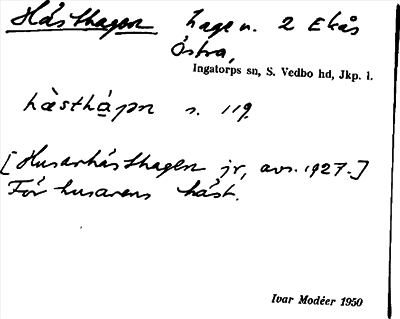 Hästhagen hage n. 2 Ekås
Östra,
Ingatorps sn, S. Vedbo hd, Jkp. l.
hæsthá̱gən s. 119.
[Husarhästhagen jr, avs. 1927.]
För husarens häst.
Ivar Modéer 1950